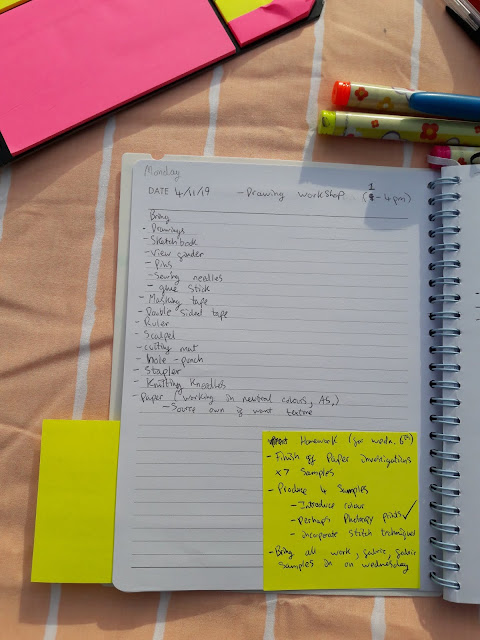 Monday
DATE 4/11/19 - Drawing workshop. (1 - 4pm)
Bring
- Drawings
- Sketchbook
- View finder
- Pins
- Sewing needles
- glue stick
- Masking tape
- Double sided tape
- Ruler
- Scalpel
- cutting mat
- hole-punch
- Stapler
- Knitting Kneedles
- Paper (working in neutral colours, A5,)
- Source own if want texture
Homework (for wedn. 6th)
- Finish off Paper investigations
x7 Samples
- Produce 4 Samples
- Introduce colour
- Perhaps Photocopy prints ✓
- incorporate stitch techniques
- Bring all work, fabric, fabric
Samples in on wednesday